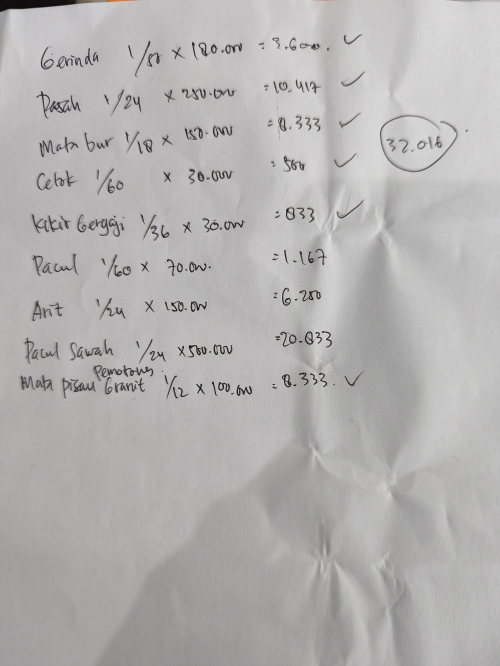 Gerinda 1/50 × 180.000 = 3.600. ✓
Pasah 1/24 × 250.000 = 10.417 ✓
Mata bur 1/18 × 150.000 = 8.333 ✓
32.016
Cetok 1/60 × 30.000 = 500 ✓
Kikir Gergaji 1/36 × 30.000 = 833 ✓
Pacul 1/60 × 70.000. = 1.167
Arit 1/24 × 150.000 = 6.250
Pacul Sawah 1/24 × 500.000 = 20.833
Pemotong
Mata pisau Granit 1/12 × 100.000 = 8.333. ✓